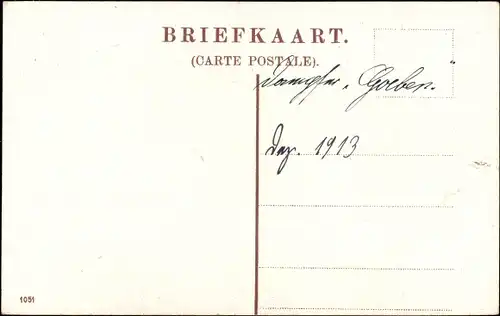 BRIEFKAART.
(CARTE POSTALE).
Dampfer „Goeben."
Dez. 1913
1051